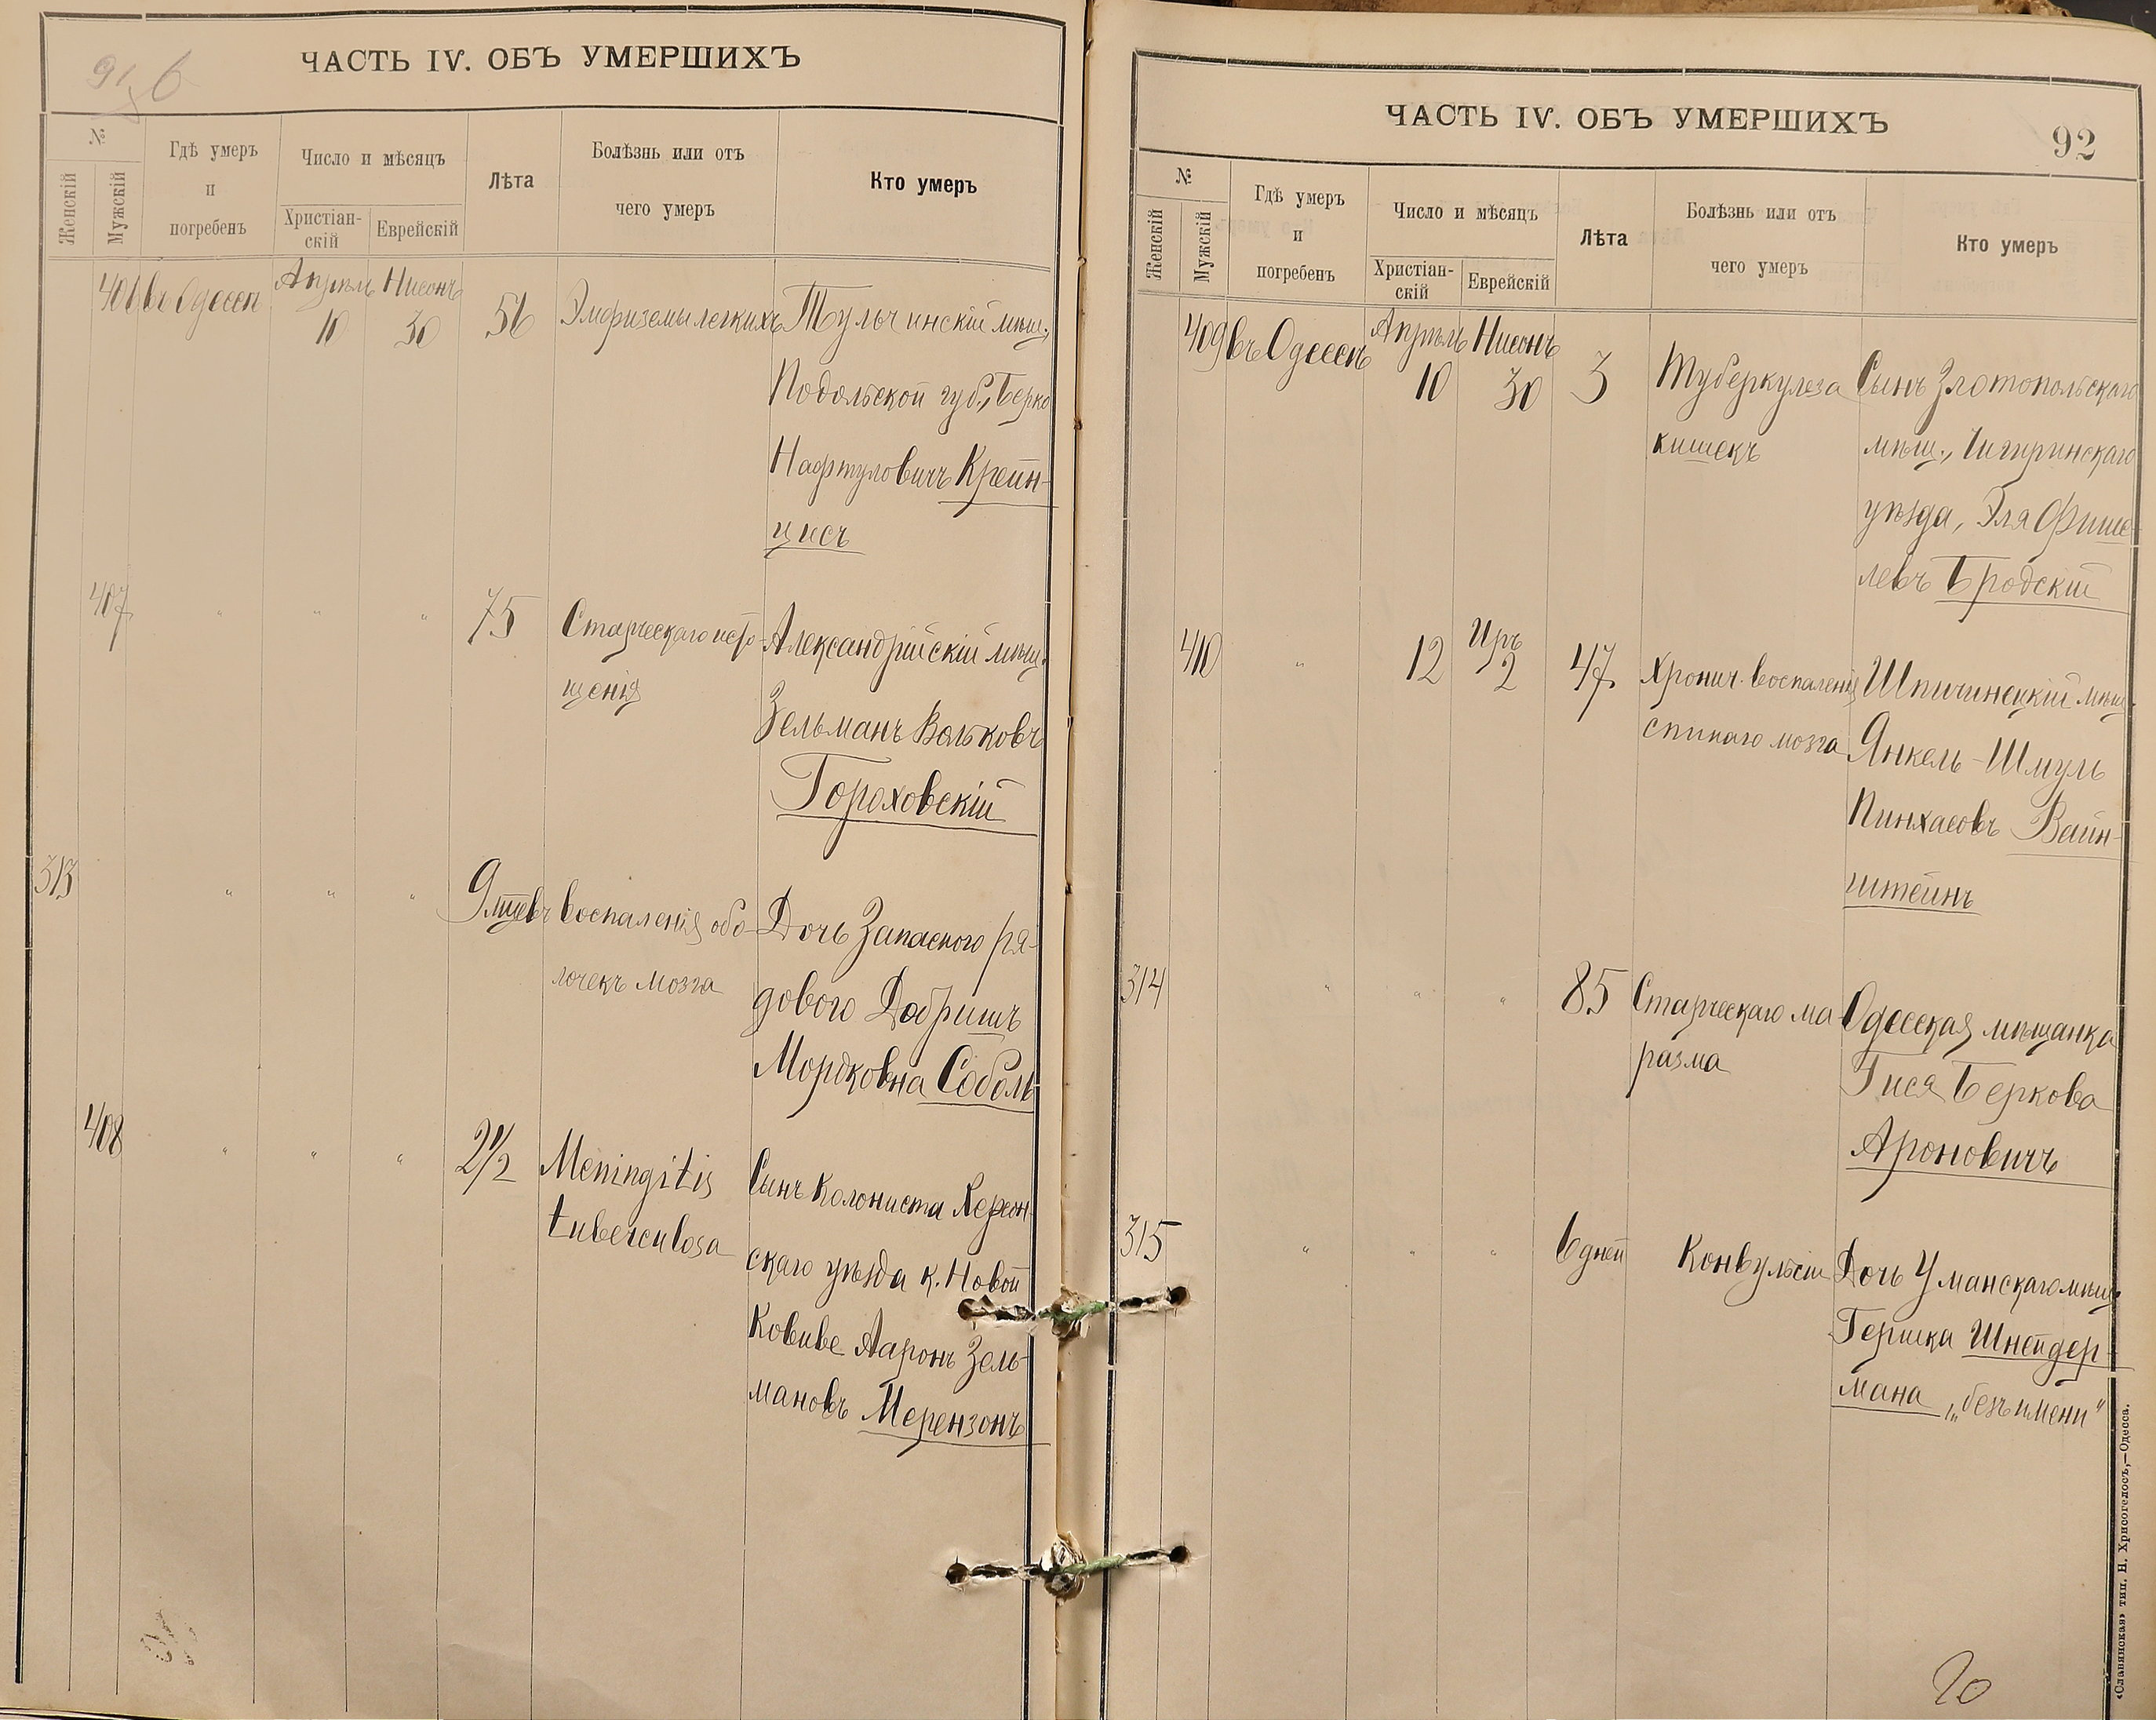 91 об
ЧАСТЬ IV. ОБЪ УМЕРШИХЪ
№
Женскій
Мужскій
Гдѣ умеръ
и
погребенъ
Число и мѣсяцъ
Христіан-
скій
Еврейскій
Лѣта
Болѣзнь или отъ
чего умеръ
Кто умеръ
406 въ Одессѣ Апрѣль 10 Нисонъ 30 56 Эмфиземы легкихъ Тульчинскій мѣщ.
Подольской губ., Берко
Нафтуловичъ Крейн-
цисъ
407 " " " 75 Старческаго исто- Александрійскій мѣщ.
щенія
Зельманъ Вольковъ
Гороховскій
313 " " " 9 мцевъ Воспаленія обо- Дочь Запасного ря-
лочекъ мозга дового Добришъ
Мордковна Соболь
408 " " " 2 1/2 Meningitis Сынъ Колониста Херсон-
tuberculosa скаго уѣзда к. Новой
Ковиве Ааронъ Зель-
мановъ Мерензонъ
ЧАСТЬ IV. ОБЪ УМЕРШИХЪ
92
№
Женскій
Мужскій
Гдѣ умеръ
и
погребенъ
Число и мѣсяцъ
Христіан-
скій
Еврейскій
Лѣта
Болѣзнь или отъ
чего умеръ
Кто умеръ
409 въ Одессѣ Апрѣль 10 Нисонъ 30 3 Туберкулеза Сынъ Златопольскаго
кишекъ мѣщ., Чигиринскаго
уѣзда, Эля Фише-
левъ Бродскій
410 " 12 Иръ 2 47 Хронич. воспаленія Шпичинецкій мѣщ.
спинаго мозга Янкель-Шмуль
Пинхасовъ Вайн-
штейнъ
314 " " " 85 Старческаго ма- Одесская мѣщанка
разма Гися Беркова
Ароновичъ
315 " " " 6 дней Конвульсіи Дочь Уманскаго мѣщ.
Гершка Шнейдер-
мана „безъ имени"
«Славянская» тип. Н. Хрисогелосъ,—Одесса.
20